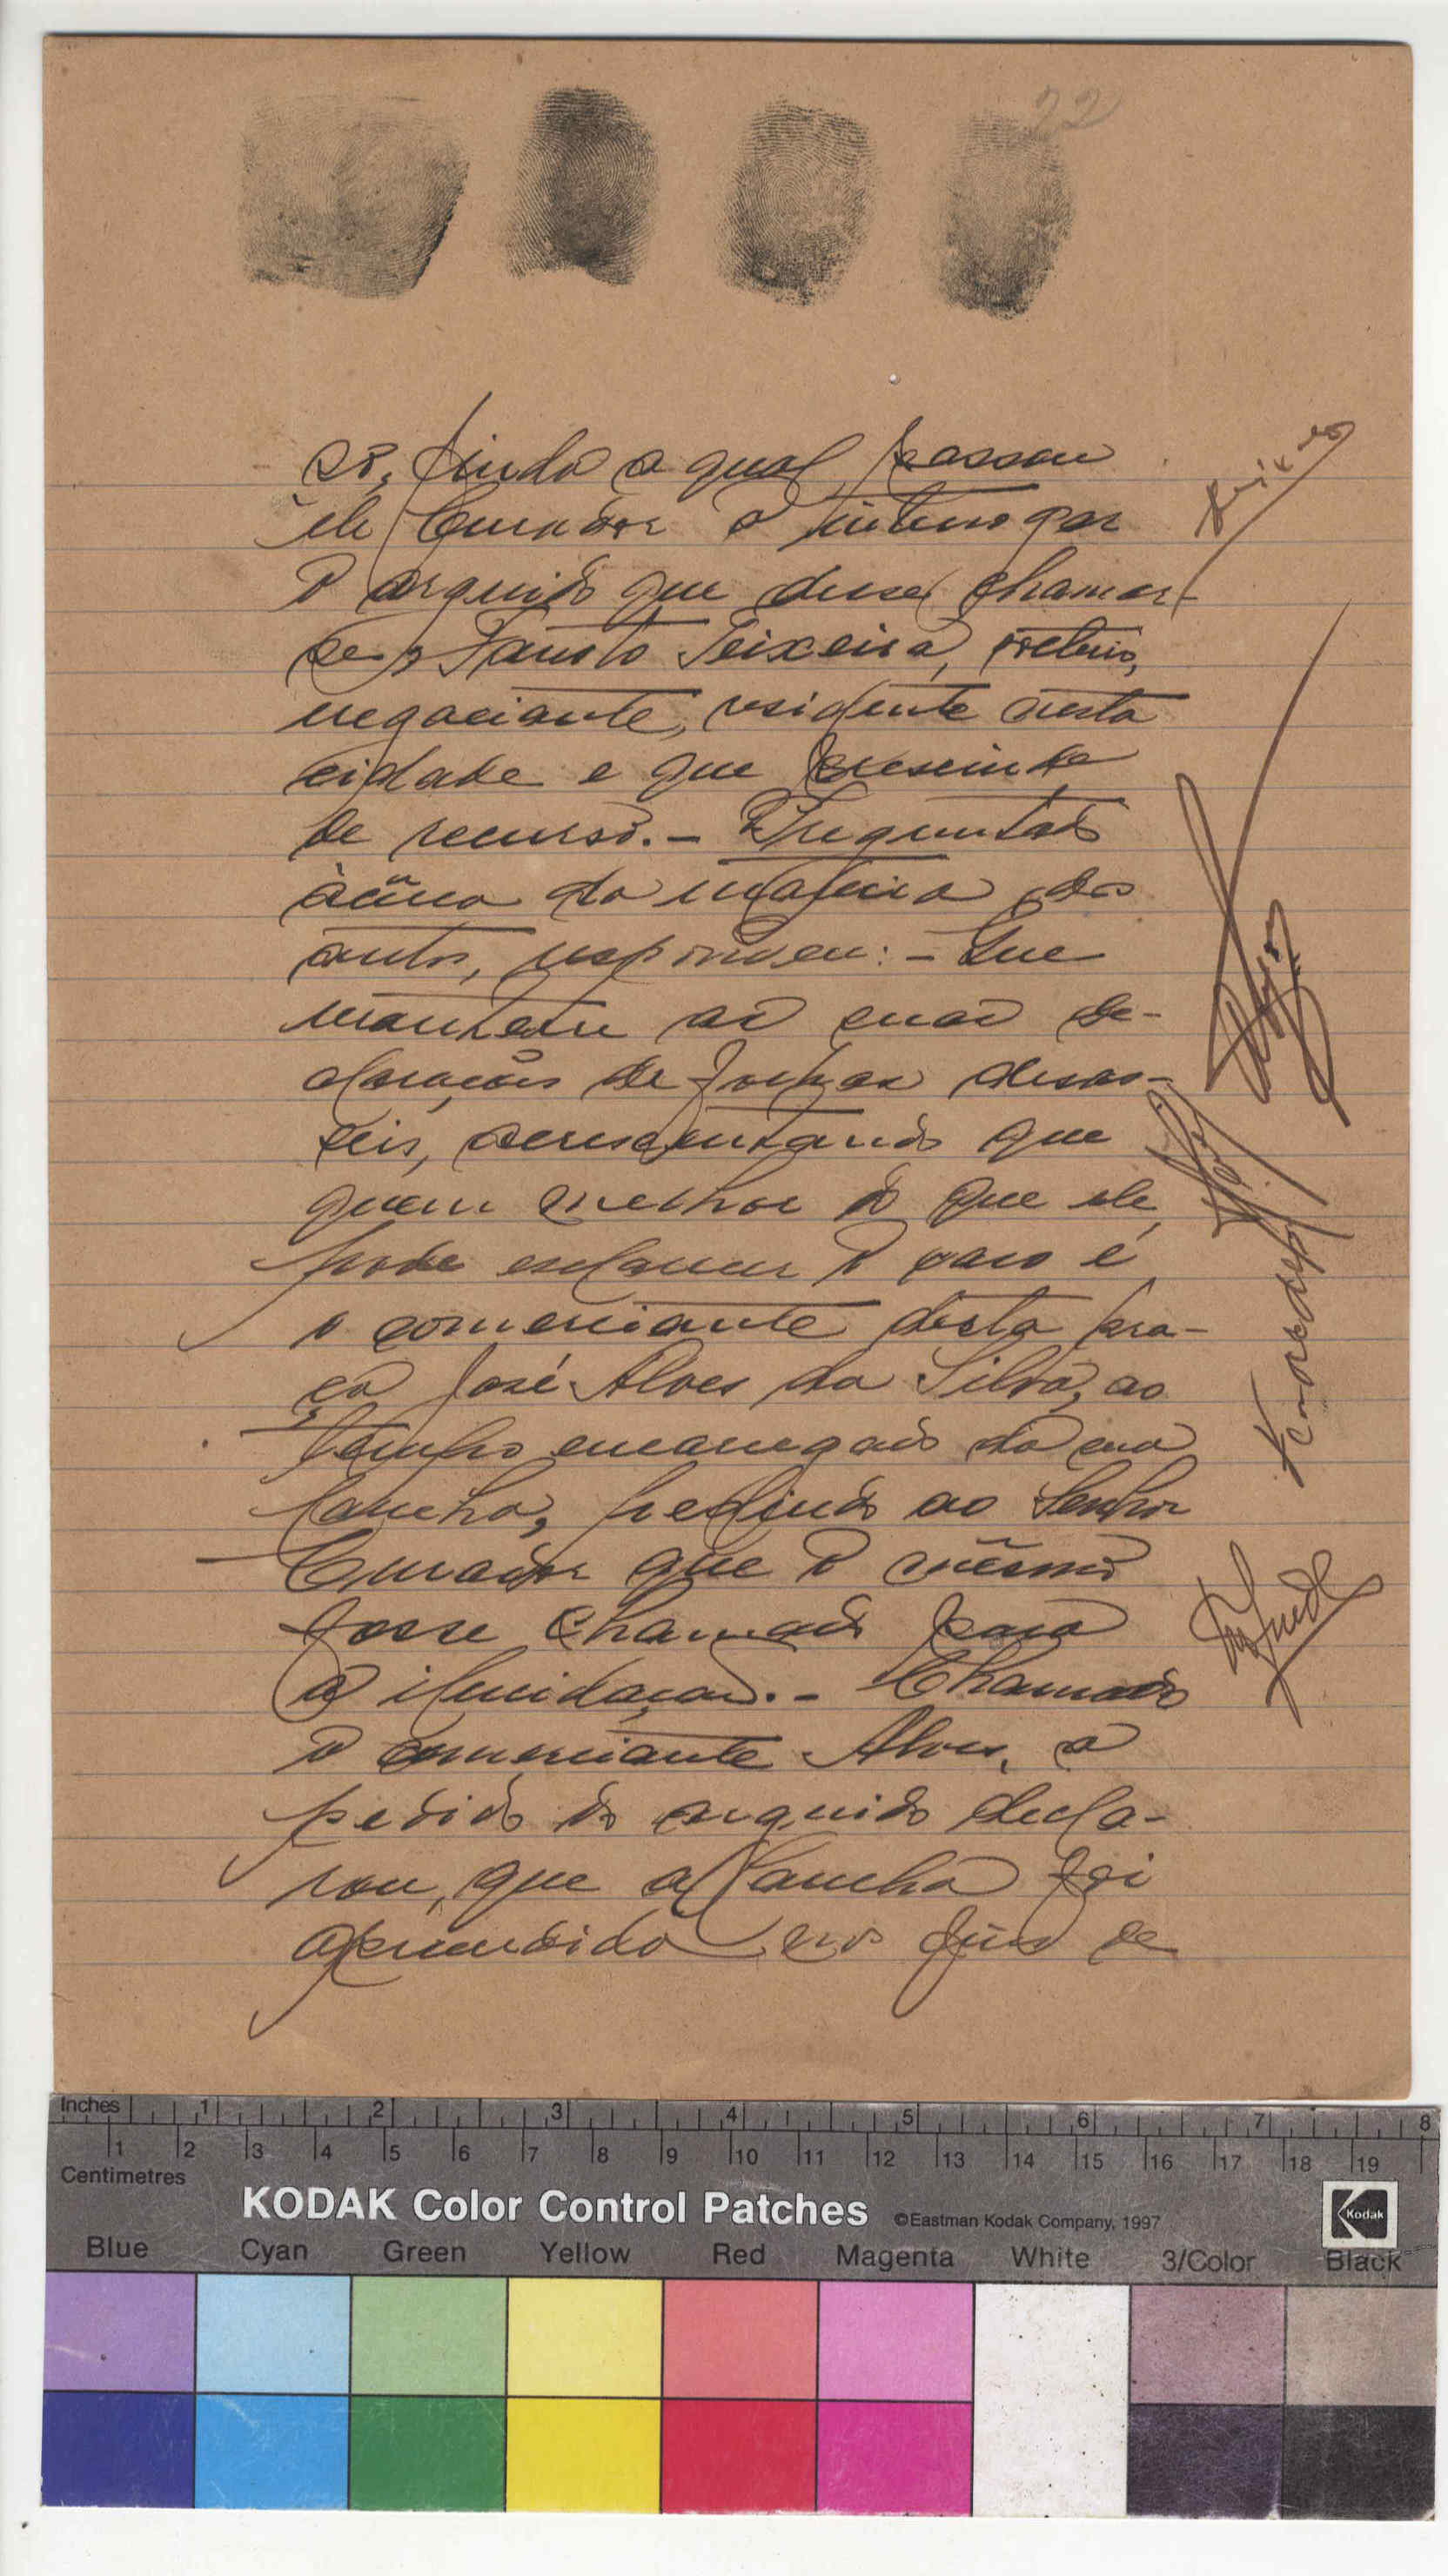 22
finda a qual, passou
ele Curador a interrogar
o arguido que disse chamar-
se, Fausto Teixeira, solteiro,
negociante, residente nesta
cidade e que prescinde
de recurso. - Preguntado
àcêrca da matéria dos
autos, respondeu: - Que
mantem as suas de-
clarações de folhas desas-
seis, acrescentando que
quem melhor do que ele
pode esclarecer o caso é
o comerciante desta pra-
ça José Alves da Silva, ao
tempo encarregado da sua
lancha, pedindo ao Senhor
Curador que o mêsmo
fosse chamado para
a ilucidação. - Chamado
o comerciante Alves, a
pedido do arguido decla-
rou, que a lancha foi
apreendida nos fins de
Inches 1 2 3 4 5 6 7 8
1 2 3 4 5 6 7 8 9 10 11 12 13 14 15 16 17 18 19
Centimetres
KODAK Color Control Patches ©Eastman Kodak Company, 1997 Kodak
Blue Cyan Green Yellow Red Magenta White 3/Color Black